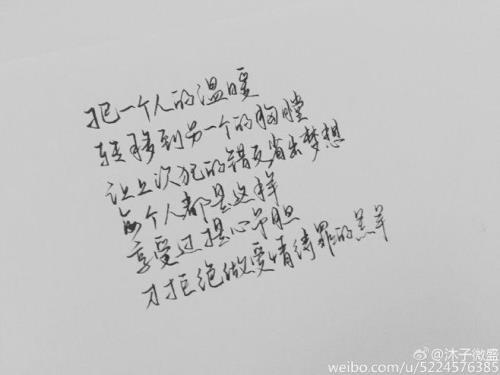 把一个人的温暖
转移到另一个的胸膛
让上次犯的错反省出梦想
每个人都是这样
享受过提心吊胆
才拒绝做爱情待罪的羔羊
@沐子微盛
weibo.com/u/5224576385